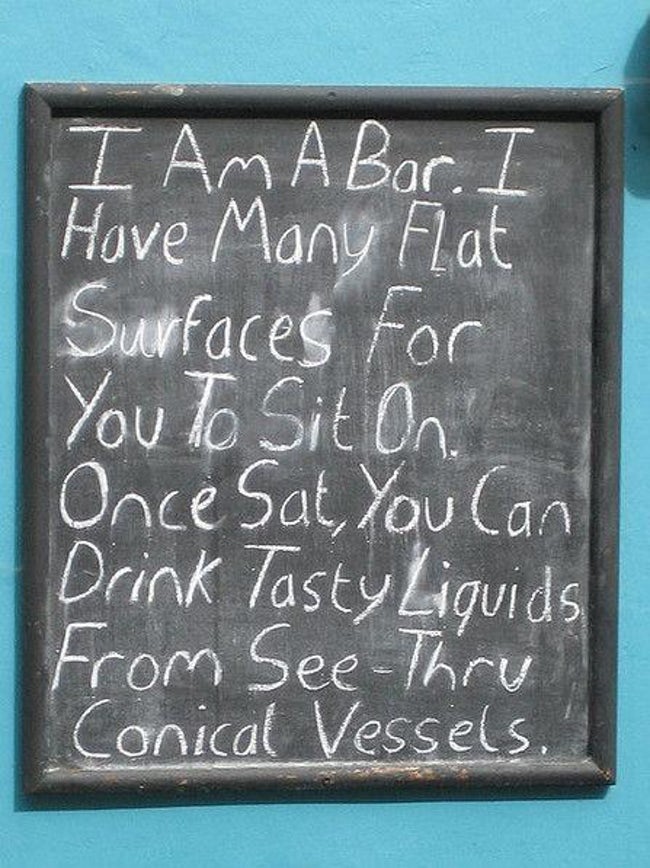 I Am A Bar. I
Have Many Flat
Surfaces For
You To Sit On.
Once Sat, You Can
Drink Tasty Liquids
From See-Thru
Conical Vessels.